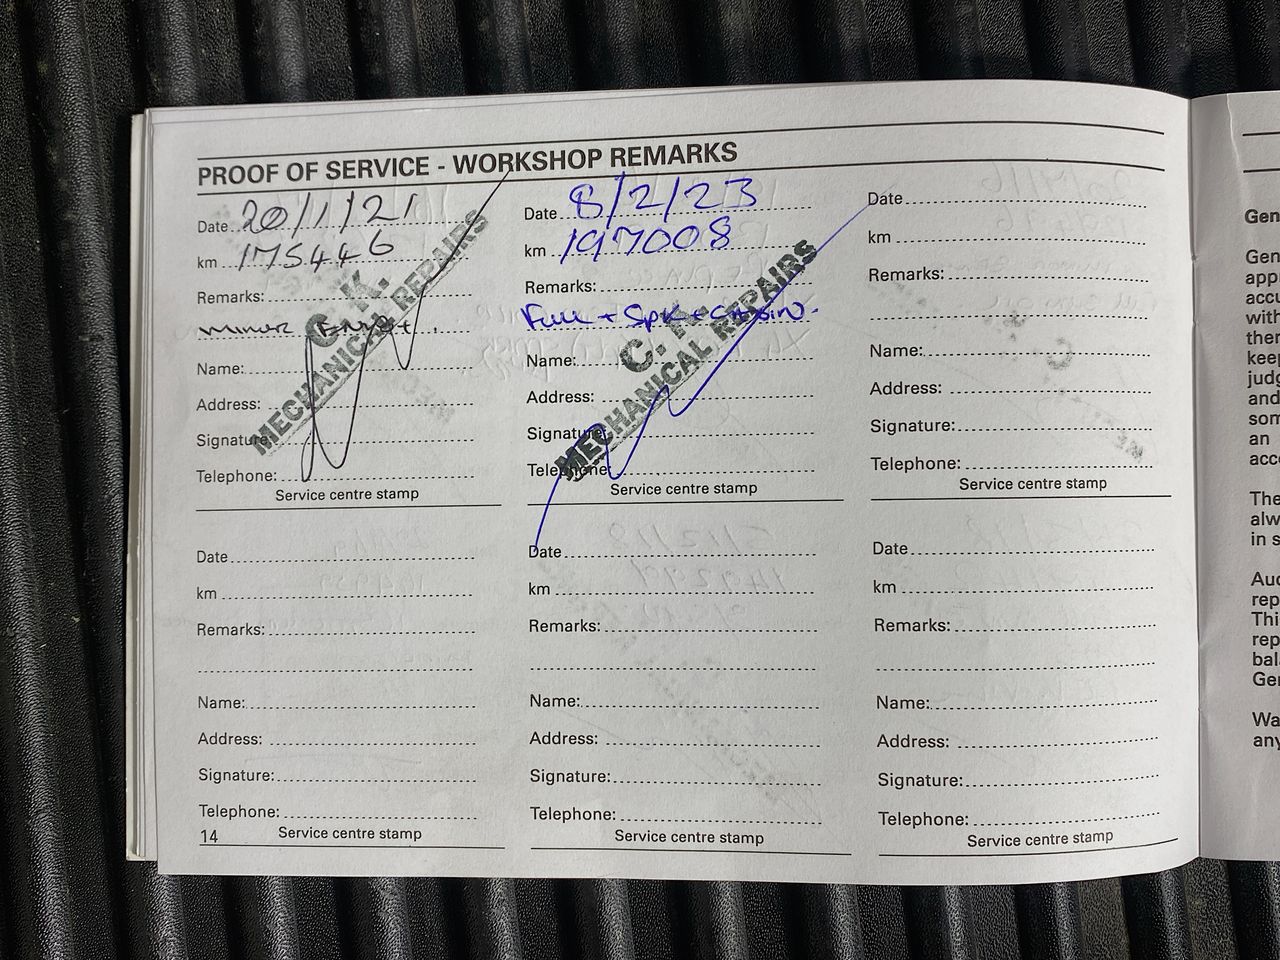 PROOF OF SERVICE - WORKSHOP REMARKS
Date 20/1/21
km 175446
Remarks:
minor
Name:
Address:
Signature
Telephone:
Service centre stamp
C. K.
MECHANICAL REPAIRS
Date 8/2/23
km 197008
Remarks:
Full + Spk +
Name:
Address:
Signature
Telephone
Service centre stamp
C. K.
MECHANICAL REPAIRS
Date
km
Remarks:
Name:
Address:
Signature:
Telephone:
Service centre stamp
Date
km
Remarks:
Name:
Address:
Signature:
Telephone:
Service centre stamp
Date
km
Remarks:
Name:
Address:
Signature:
Telephone:
Service centre stamp
Date
km
Remarks:
Name:
Address:
Signature:
Telephone:
Service centre stamp
14
Gen
Gen
app
accu
with
ther
keep
judg
and
som
an
acco
The
alw
in s
Auc
rep
Thi
rep
bala
Ger
Wa
any